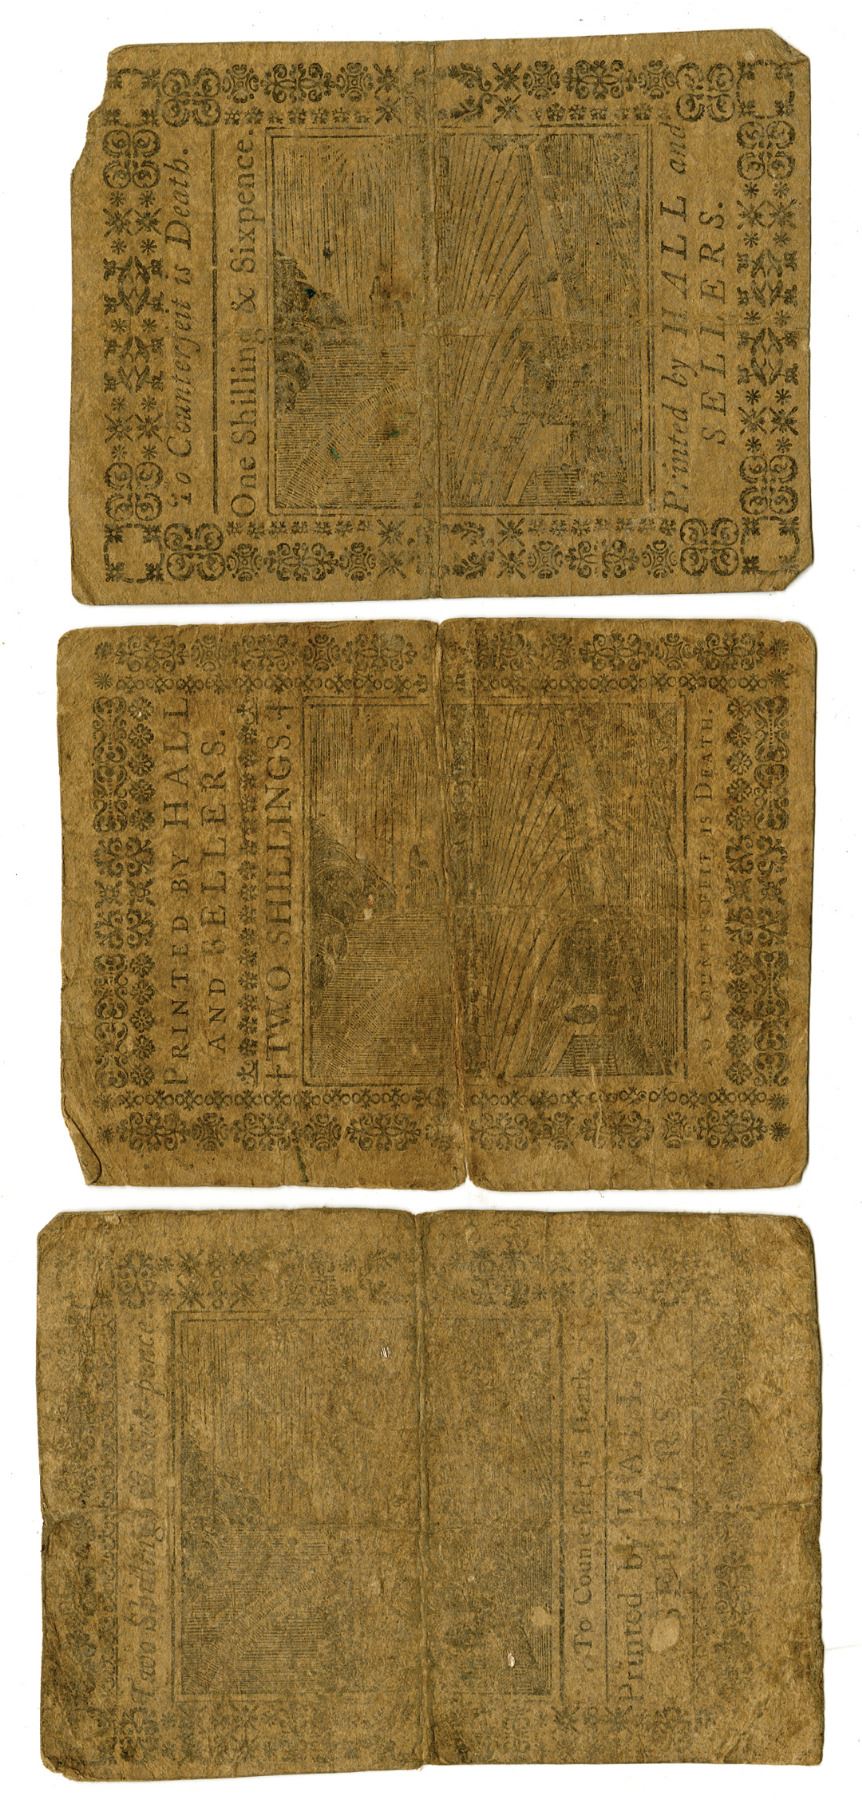 To Counterfeit is Death.
One Shilling & Sixpence.
Printed by HALL and
SELLERS.
PRINTED BY HALL
AND SELLERS.
†TWO SHILLINGS.†
o COUNTERFEIT IS DEATH.
Two Shillings & Six-pence
To Counterfeit is Death.
Printed by HALL
SELLERS